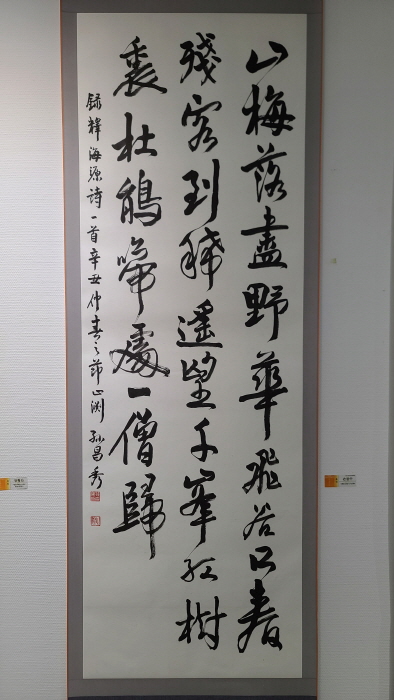 山梅落盡野華飛谷口春
殘客到稀遙望千峯紅樹
裏杜鵑啼處一僧歸
錄釋海源詩一首辛丑仲春之節正淵孫昌秀